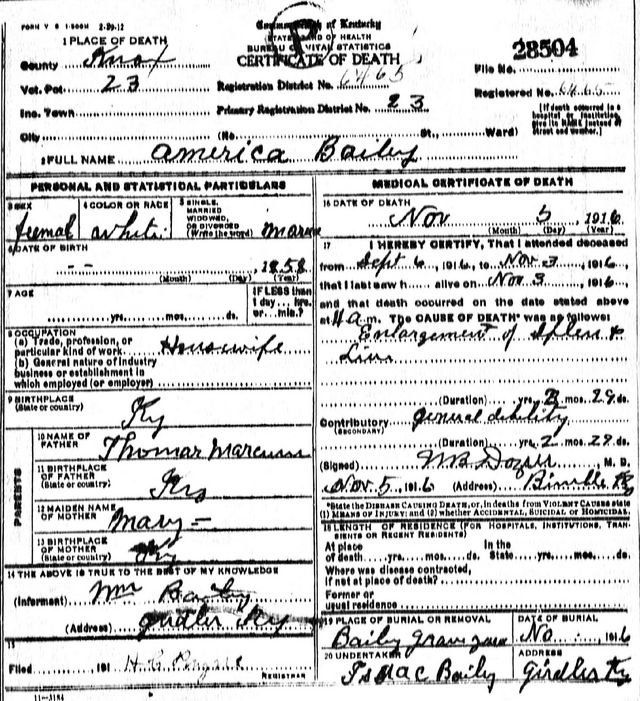 FORM V S 1-500M 2-29-12
Commonwealth of Kentucky
STATE BOARD OF HEALTH
BUREAU OF VITAL STATISTICS
CERTIFICATE OF DEATH
1 PLACE OF DEATH
County Knox
Vot. Pct. 23
Inc. Town
City
Registration District No. 6465
Primary Registration District No. 23
(No. St., Ward)
28504
File No.
Registered No. 6465
[If death occurred in a hospital or institution, give its NAME instead of street and number.]
2 FULL NAME America Baily
PERSONAL AND STATISTICAL PARTICULARS
3 SEX
femal
4 COLOR OR RACE
white
5 SINGLE, MARRIED WIDOWED, OR DIVORCED (Write the word)
6 DATE OF BIRTH
-- 1858
(Month) (Day) (Year)
7 AGE
yrs. mos. ds.
IF LESS than 1 day... hrs. or... min.?
8 OCCUPATION
(a) Trade, profession, or particular kind of work Housewife
(b) General nature of industry business or establishment in which employed (or employer)
9 BIRTHPLACE
(State or country) Ky
PARENTS
10 NAME OF FATHER Thomas Marcum
11 BIRTHPLACE OF FATHER (State or country) Ky
12 MAIDEN NAME OF MOTHER Mary -
13 BIRTHPLACE OF MOTHER (State or country) Ky
14 THE ABOVE IS TRUE TO THE BEST OF MY KNOWLEDGE
(Informant) Wm Baily
(Address) Girdler Ky
15
Filed 191 H. C.
REGISTRAR
11-3184
MEDICAL CERTIFICATE OF DEATH
16 DATE OF DEATH
Nov 5, 1916
(Month) (Day) (Year)
17 I HEREBY CERTIFY, That I attended deceased
from Sept 6, 1916, to Nov. 3, 1916,
that I last saw h alive on Nov 3, 1916,
and that death occurred on the date stated above
at 4 a.m. The CAUSE OF DEATH* was as follows:
Enlargement of Spleen &
Liver
(Duration) yrs. 2 mos. 29 ds.
Contributory general debility
(SECONDARY)
(Duration) yrs. 2 mos. 29 ds.
(Signed) M. D.
Nov. 5, 1916 (Address) Bimble Ky
*State the DISEASE CAUSING DEATH, or, in deaths from VIOLENT CAUSES state (1) MEANS OF INJURY; and (2) whether ACCIDENTAL, SUICIDAL or HOMICIDAL.
18 LENGTH OF RESIDENCE (FOR HOSPITALS, INSTITUTIONS, TRANSIENTS OR RECENT RESIDENTS)
At place of death yrs. mos. ds. In the State yrs. mos. ds.
Where was disease contracted, if not at place of death?
Former or usual residence
19 PLACE OF BURIAL OR REMOVAL
Baily graveyard
DATE OF BURIAL
No 1916
20 UNDERTAKER
Isaac Baily
ADDRESS
Girdler Ky